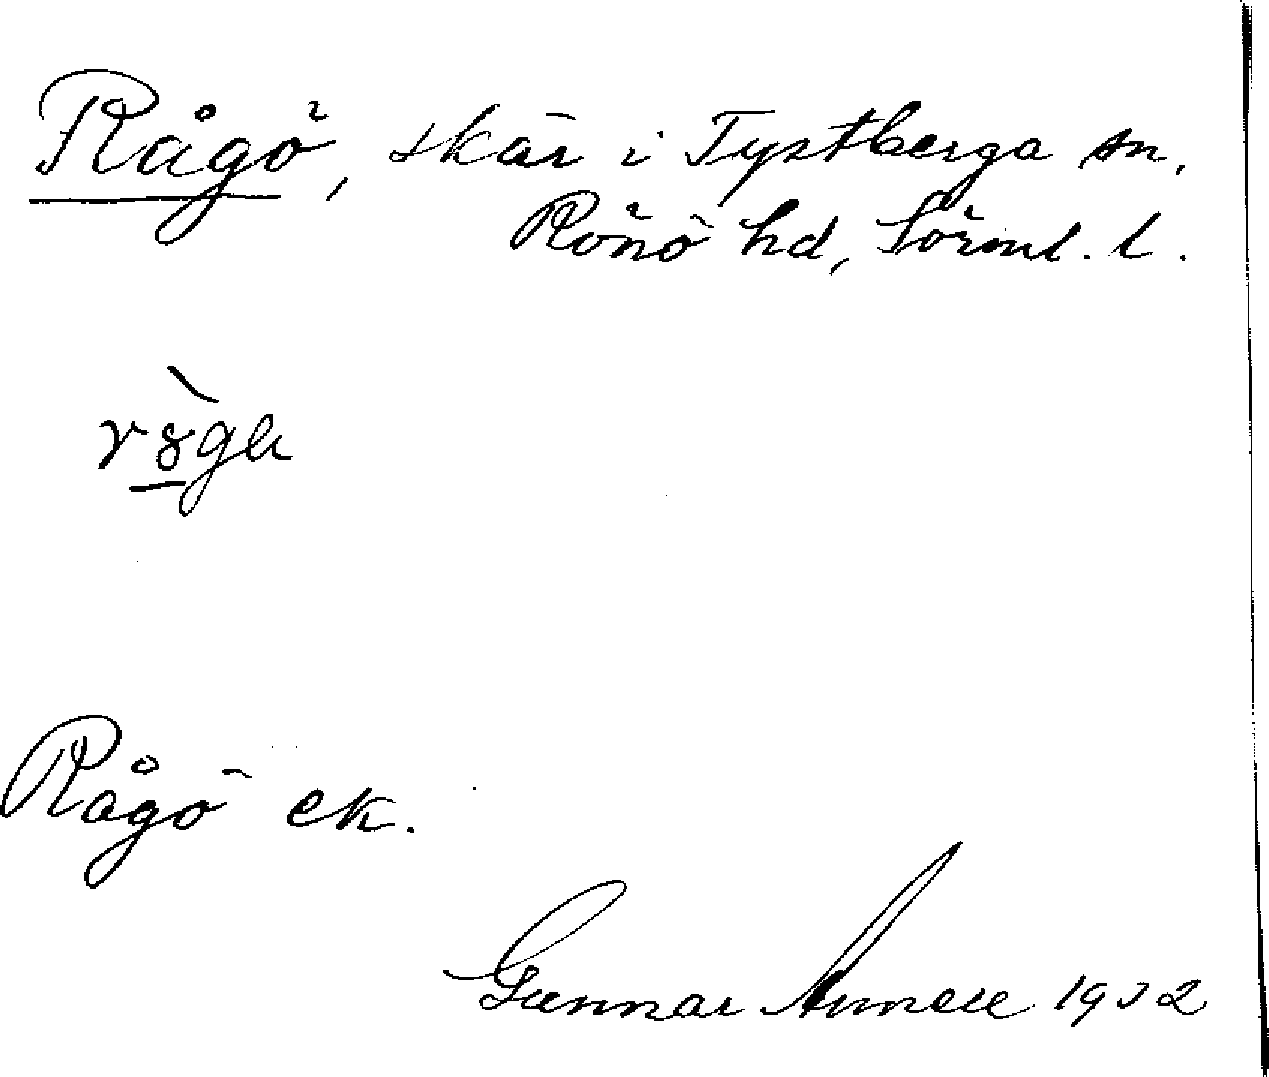 Rågö, skär i Tystberga sn,
Rönö hd, Sörml. l.
Rågö ek.
Gunnar Annell 1932